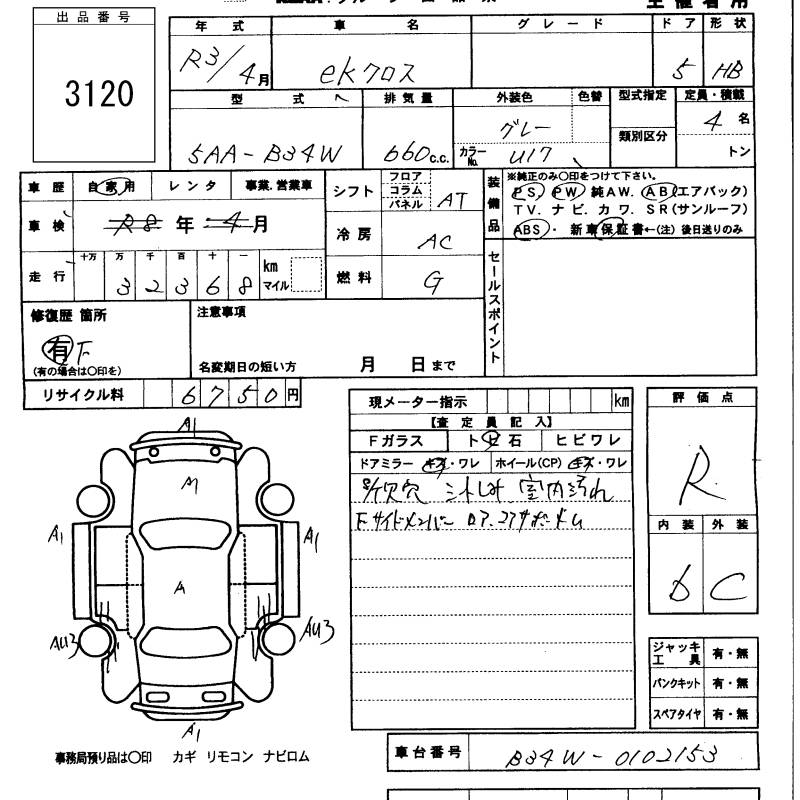 出品番号
3120
年式 車名 グレード ドア 形状
R3/4月 ekクロス 5 HB
型式 排気量 外装色 色替 型式指定 定員・積載
5AA-B34W 660c.c. グレー 類別区分 4名
カラーNo. U17 トン
車歴 自家用 レンタ 事業.営業車
車検 R8年4月
走行 十万 万 千 百 十 一 km マイル
32368
シフト フロア コラム パネル AT
冷房 AC
燃料 G
装備品
※純正のみ〇印をつけて下さい。
PS. PW 純AW. AB(エアバック)
TV. ナビ. カワ. SR(サンルーフ)
ABS・新車保証書←(注)後日送りのみ
セールスポイント
修復歴 箇所
有 F
(有の場合は〇印を)
注意事項
名変期日の短い方 月 日まで
リサイクル料 6750円
現メーター指示 km
【査定員記入】
Fガラス トビ石 ヒビワレ
ドアミラー キズ・ワレ ホイール(CP) キズ・ワレ
穴 シートしみ 室内汚れ
Fサイドメンバー コアサポ
評価点
R
内装 外装
D C
ジャッキ工具 有・無
パンクキット 有・無
スペアタイヤ 有・無
A1
A1
A1 A1
A
AU3 AU3
A1
事務局預り品は〇印 カギ リモコン ナビロム
車台番号 B34W-0102153